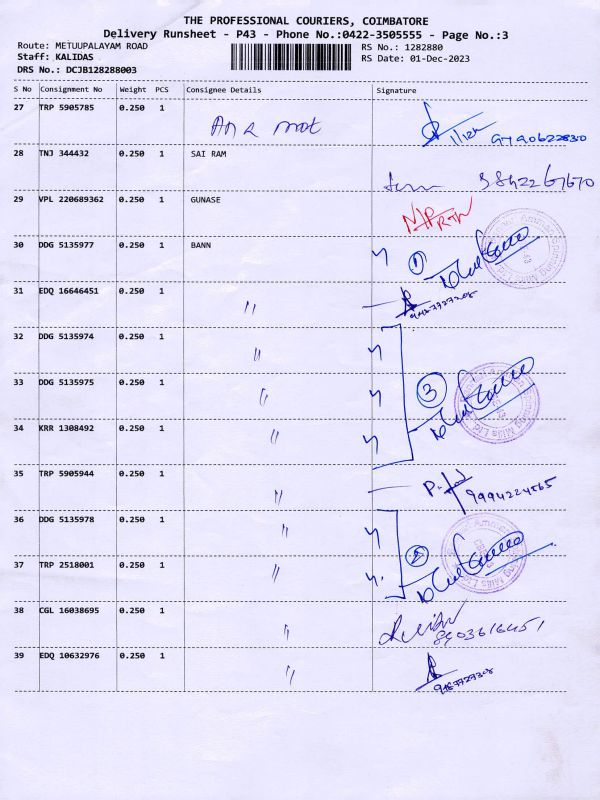 THE PROFESSIONAL COURIERS, COIMBATORE
Delivery Runsheet - P43 - Phone No.:0422-3505555 - Page No.:3
Route: METUUPALAYAM ROAD RS No.: 1282880
Staff: KALIDAS RS Date: 01-Dec-2023
DRS No.: DCJB128288003
S No Consignment No Weight PCS Consignee Details Signature
27 TRP 5905785 0.250 1
28 TNJ 344432 0.250 1 SAI RAM
29 VPL 220689362 0.250 1 GUNASE
30 DDG 5135977 0.250 1 BANN
1
31 EDQ 16646451 0.250 1 "
32 DDG 5135974 0.250 1 "
33 DDG 5135975 0.250 1 "
3
34 KRR 1308492 0.250 1 "
35 TRP 5905944 0.250 1 "
9994224565
36 DDG 5135978 0.250 1 "
2
37 TRP 2518001 0.250 1 "
38 CGL 16038695 0.250 1 "
8903616451
39 EDQ 10632976 0.250 1 "